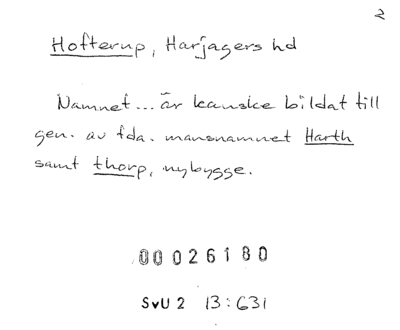 2
Hofterup, Harjagers hd
Namnet... är kanske bildat till
gen. av fda. mansnamnet Harth
samt thorp, nybygge.
00026180
SvU 2 13:631